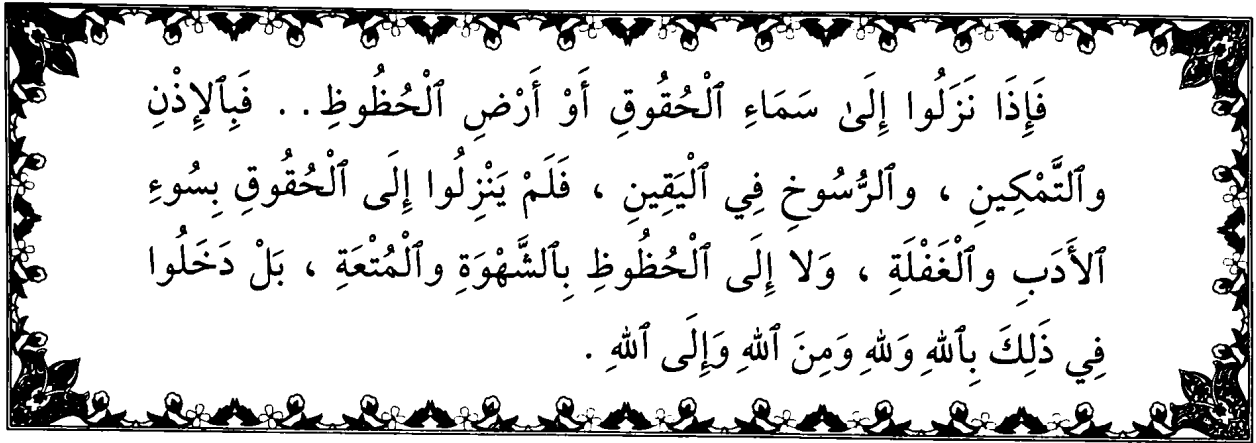 فَإِذَا نَزَلُوا إِلَىٰ سَمَاءِ ٱلْحُقُوقِ أَوْ أَرْضِ ٱلْحُظُوظِ . . فَبِٱلإِذْنِ
وٱلتَّمْكِينِ ، وٱلرُّسُوخِ فِي ٱلْيَقِينِ ، فَلَمْ يَنْزِلُوا إِلَى ٱلْحُقُوقِ بِسُوءِ
ٱلأَدَبِ وٱلْغَفْلَةِ ، وَلا إِلَى ٱلْحُظُوظِ بِٱلشَّهْوَةِ وٱلْمُتْعَةِ ، بَلْ دَخَلُوا
فِي ذَلِكَ بِٱللهِ وَللهِ وَمِنَ ٱللهِ وَإِلَى ٱللهِ .